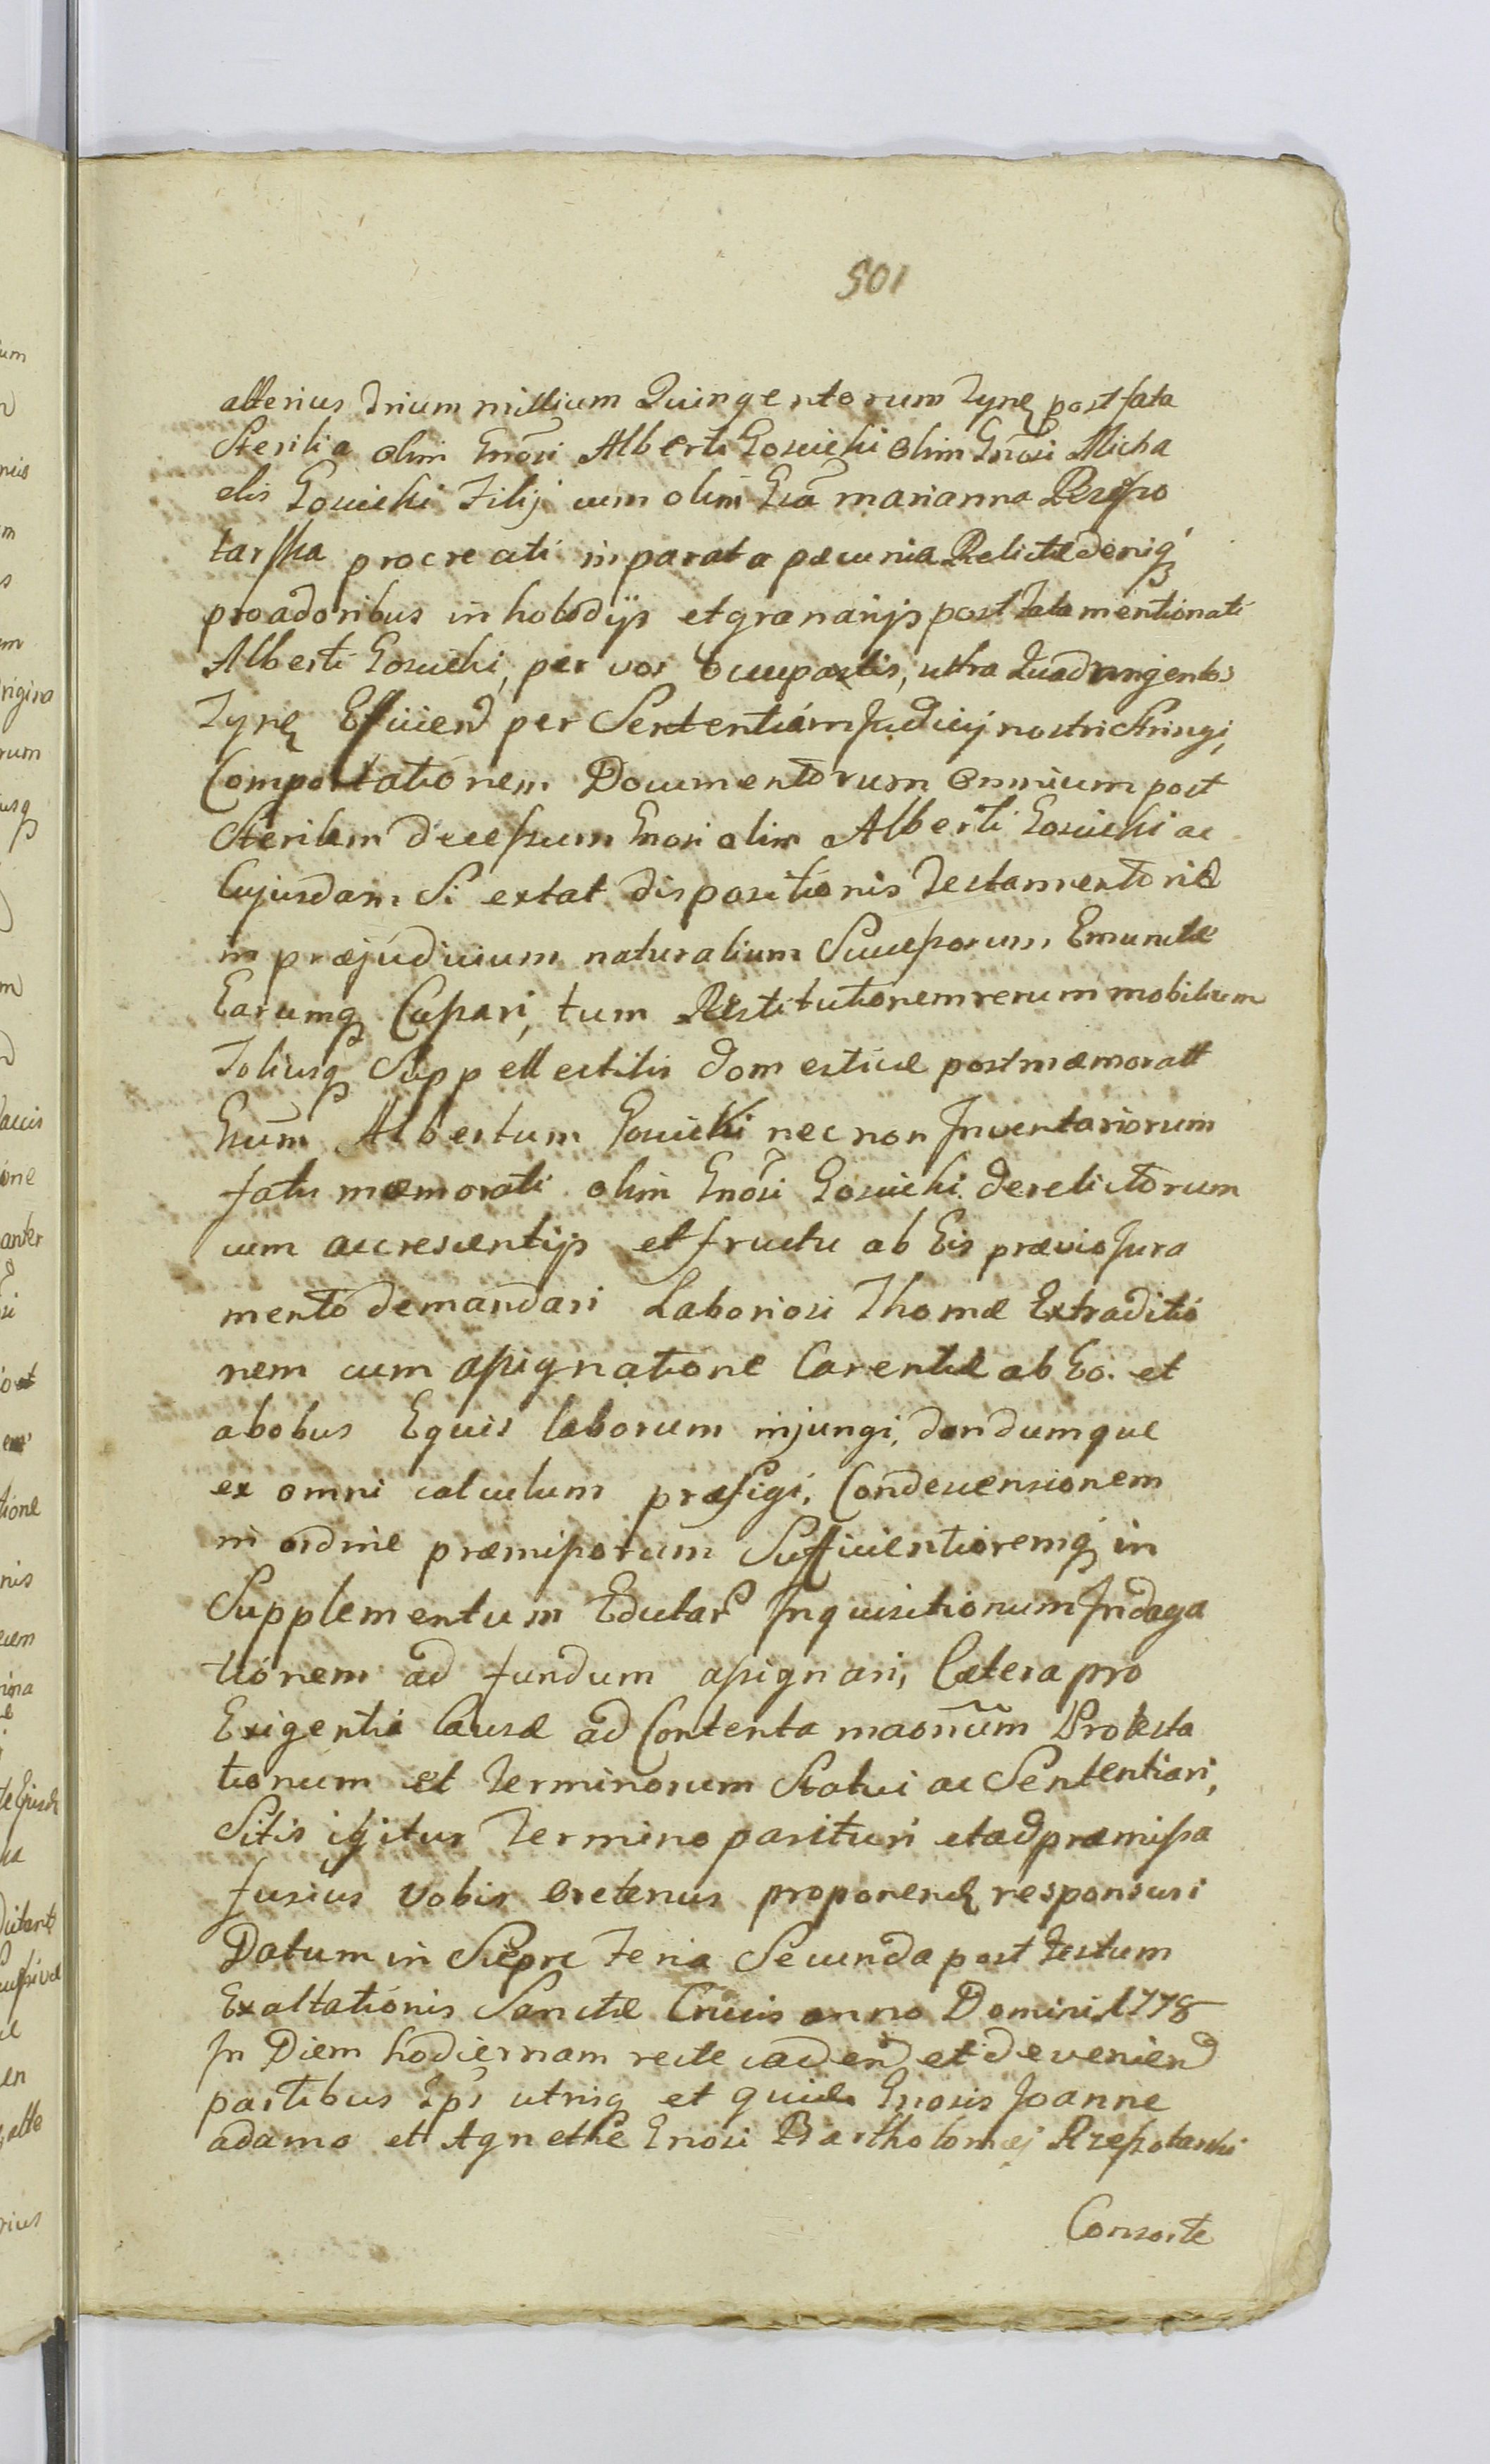 501
alterius trium millium Quingentorum Tynf post fata
Sterilia olim Gnosi Alberti Gosucki olim Gnosi Micha
elis Gosucki Filij cum olim Gsa marianna Rzeszo
tarska procreati in parata pæcunia Relictæ deniq
pro adoribus in holodijs et granarijs post Fata mentionati
Alberti Gosucki, per vos occupatis, ultra Quadringentos
Tynf Efficien per Sententiam Judicij nostri Stringi,
Comportationem Documentorum omnium post
Sterilem decessum Gnosi olim Alberti Gosucki ac
Cujusdam Si extat dispositionis Testamentoriæ
in præjudicium naturalium Successorum Emunctæ
Earumq Cassari, tum Restitutionem rerum mobilium
Totiusq Suppellectilis domesticæ post mæmoratt
Gsum Albertum Gosucki nec non Inventariorum
fatu mæmorati olim Gnosi Gosucki derelictorum
cum accrescentijs et fructu ab Eis prævio Jura
mento demandari Laboriosi Thomæ Extraditio
nem cum assignatione Carentiæ ab Eo. et
abobus Equis laborum injungi, dandumque
ex omni calculum præfigi, Condescensionem
in ordine præmissorum Sufficientioremq in
Supplementum Eductar Inquisitionum Indaga
tionem ad fundum assignari, Cætera pro
Exigentia Causæ ad Contenta maonum Protesta
tionum et Terminorum Statui ac Sententiari,
Sitis igitur Termino parituri et ad præmissa
fusius Vobis oretenus proponend responsuri
Datum in Siepre Feria Secunda post Festum
Exaltationis Sanctæ Crucis anno Domini 1778
In Diem hodiernam recte caden et devenien
partibus Ips utrisq et quide Gnosis Joanne
adamo et Agnethe Gnosi Bartholomæj Rzeszotarski
Consorte